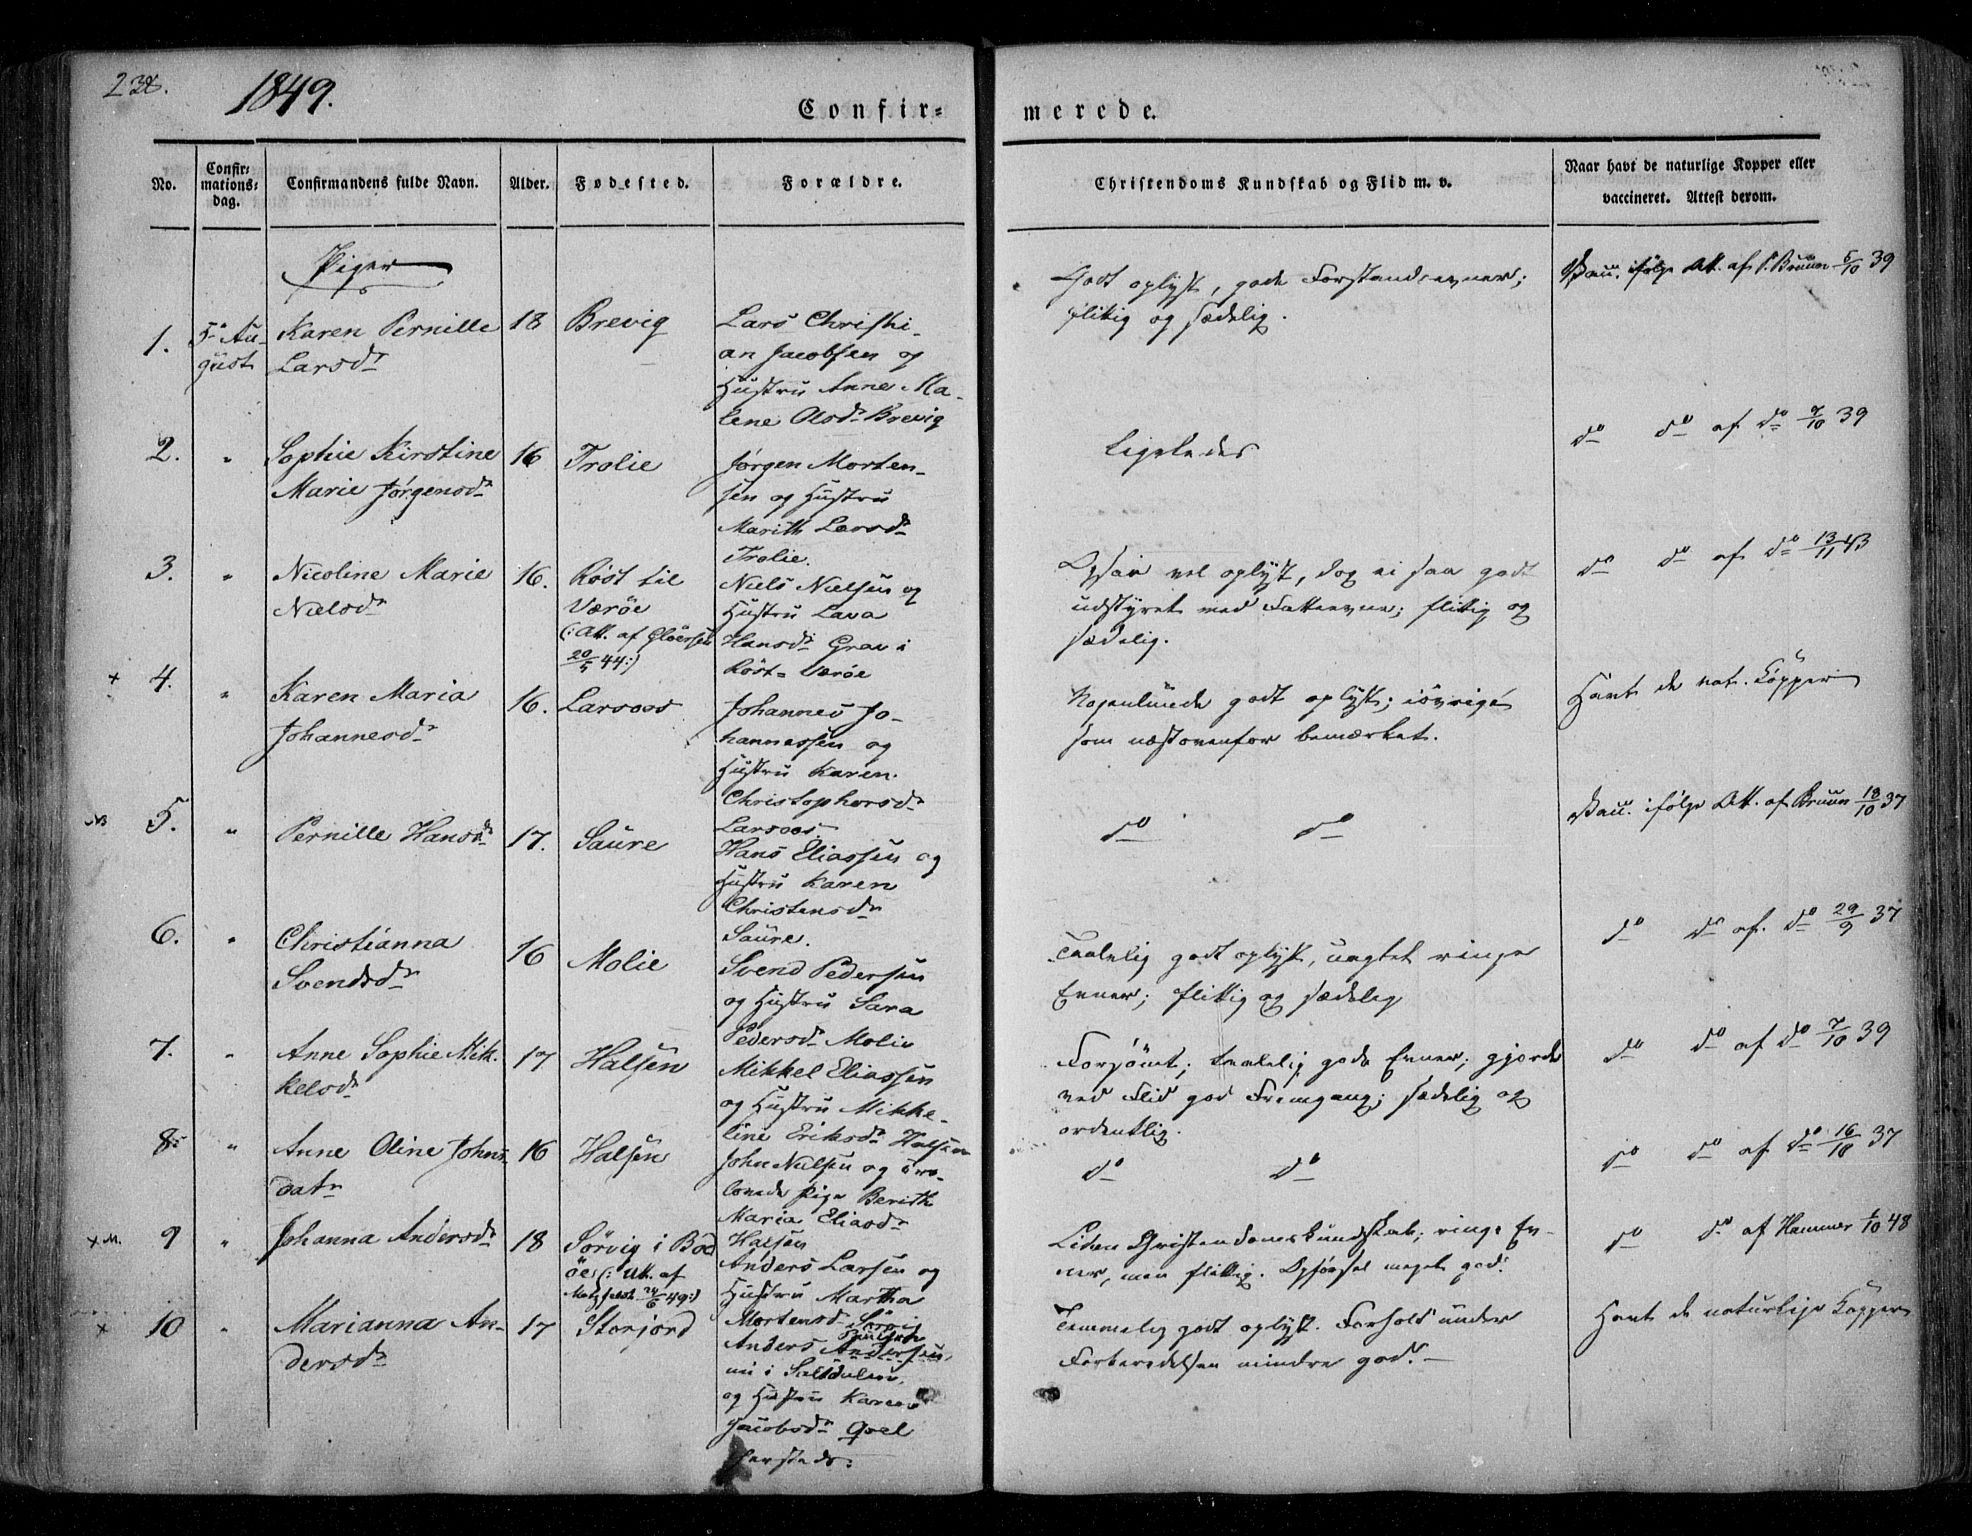 1849.
Confir= merede.
No.
Confir=
mations=
dag.
Confirmandens fulde Navn.
Alder.
Fødested.
Forældre.
Christendoms Kundskab og Flid m. v.
Naar havt de naturlige Kopper eller
vaccineret. Attest derom.
Piger
1.
5te Au-
gust
Karen Pernille
Larsdr
18
Brevig
Lars Christi-
an Jacobsen og
Hustru Anne Ma-
lene Olsdr Brevig
Godt oplyst, gode Forstandsevner;
flittig og sædelig.
Vacc. ifølge Att. af Bruun 5/10 39
2.
"
Sophie Kirstine
Marie Jørgensdr
16
Trolie
Jørgen Morten-
sen og Hustru
Marith Larsdr
Trolie.
Ligeledes
do do af do 7/10 39
3.
"
Nicoline Marie
Nielsdr
16.
Røst til
Værøe
(: Att. af
20/5 44:)
Niels Nielsen og
Hustru Lava
Hansdr i
Røst= Værøe
vel oplyst, dog ei saa godt
udstyret med Fatteevne; flittig og
sædelig.
do do af do 13/11 43
+ 4.
"
Karen Maria
Johannesdr
16.
Larsoos
Johannes Jo-
hannessen og
Hustru Karen
Christophersdr
Larsoos
Nogenlunde godt oplyst; iøvrigt
som næstovenfor bemærket.
Havt de nat. Kopper
NB 5.
"
Pernille Hansdr
17.
Saure
Hans Eliassen og
Hustru Karen
Christensdr
Saure.
do do
Vacc. ifølge Att. af Bruun 18/10 37
6.
"
Christianna
Svendsdr
16
Molie
Svend Pedersen
og Hustru Sara
Pedersdr Molie
Taalelig godt oplyst, uagtet ringe
Evner; flittig og sædelig
do do af do 29/9 37
7.
"
Anne Sophie Mik-
kelsdr
17
Halsen
Mikkel Eliassen
og Hustru Mikke-
line Eriksdr Halsen
Forsømt; taalelig gode Evner; gjorde
ved Flid god Fremgang; sædelig og
ordentlig.
do do af do 7/10 39
8.
"
Anne Oline Johns
datr
16
Halsen
John Nielsen og tro-
lovede Pige Berith
Maria Eliasdr
Halsen
do do
do do af do 16/10 37
+ M. 9
"
Johanna Andersdr
18
Sørvig i Bod
øe (: Att. af
24/6 49:)
Anders Larsen og
Hustru Martha
Mortensdr Sørvig
Liden Christendomskundskab; ringe Ev-
ner, men flittig. Opførsel meget god.
do do af Hammer 1/10 48
+ 10
"
Marianna An-
dersdr
17
Storjord
Anders Andersen,
nu i Saltdalen,
og Hustru Karen
Jacobsdr
Temmelig godt oplyst. Forhold under
Forberedelsen mindre god.
Havt de naturlige Kopper